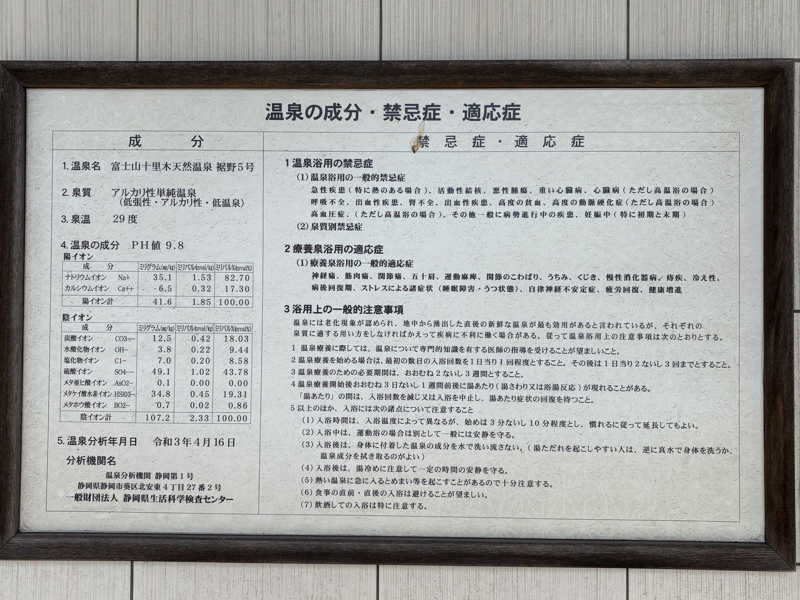 温泉の成分・禁忌症・適応症
成 分
1.温泉名 富士山十里木天然温泉 裾野5号
2.泉質 アルカリ性単純温泉
(低張性・アルカリ性・低温泉)
3.泉温 29度
4.温泉の成分 PH値9.8
陽イオン
成 分 ミリグラム(mg/kg) ミリバル(mval/kg) ミリバル%(mval%)
ナトリウムイオン Na+ 35.1 1.53 82.70
カルシウムイオン Ca++ 6.5 0.32 17.30
陽イオン計 41.6 1.85 100.00
陰イオン
成 分 ミリグラム(mg/kg) ミリバル(mval/kg) ミリバル%(mval%)
炭酸イオン CO3-- 12.5 0.42 18.03
水酸化物イオン OH- 3.8 0.22 9.44
塩化物イオン C1- 7.0 0.20 8.58
硫酸イオン SO4-- 49.1 1.02 43.78
メタ亜ヒ酸イオン AsO2- 0.1 0.00 0.00
メタケイ酸水素イオン HSiO3- 34.8 0.45 19.31
メタホウ酸イオン BO2- 0.7 0.02 0.86
陰イオン計 107.2 2.33 100.00
5.温泉分析年月日 令和3年4月16日
分析機関名
温泉分析機関 静岡第1号
静岡県静岡市葵区北安東4丁目27番2号
一般財団法人 静岡県生活科学検査センター
禁忌症・適応症
1 温泉浴用の禁忌症
(1)温泉浴用の一般的禁忌症
急性疾患(特に熱のある場合)、活動性結核、悪性腫瘍、重い心臓病、心臓病(ただし高温浴の場合)
呼吸不全、出血性疾患、腎不全、出血性疾患、高度の貧血、高度の動脈硬化症(ただし高温浴の場合)
高血圧症、(ただし高温浴の場合)、その他一般に病勢進行中の疾患、妊娠中(特に初期と末期)
(2)泉質別禁忌症
2 療養泉浴用の適応症
(1)療養泉浴用の一般的適応症
神経痛、筋肉痛、関節痛、五十肩、運動麻痺、関節のこわばり、うちみ、くじき、慢性消化器病/痔疾、冷え性、
病後回復期、ストレスによる諸症状(睡眠障害・うつ状態)、自律神経不安定症、疲労回復、健康増進
3 浴用上の一般的注意事項
温泉には老化現象が認められ、地中から湧出した直後の新鮮な温泉が最も効用があると言われているが、それぞれの
泉質に適する用い方をしなければかえって疾病に不利に働く場合がある。従って温泉浴用上の注意事項は次のとおりとする。
1 温泉療養に際しては、温泉について専門的知識を有する医師の指導を受けることが望ましいこと。
2 温泉療養を始める場合は、最初の数日の入浴回数を1日当り1回程度とすること。その後は1日当り2ないし3回までとすること。
3 温泉療養のための必要期間は、おおむね2ないし3週間とすること。
4 温泉療養開始後おおむね3日ないし1週間前後に湯あたり(湯さわり又は浴湯反応)が現れることがある。
「湯あたり」の間は、入浴回数を減じ又は入浴を中止し、湯あたり症状の回復を待つこと。
5 以上のほか、入浴には次の諸点について注意すること
(1)入浴時間は、入浴温度によって異なるが、始めは3分ないし10分程度とし、慣れるに従って延長してもよい。
(2)入浴中は、運動浴の場合は別として一般には安静を守る。
(3)入浴後は、身体に付着した温泉の成分を水で洗い流さない。(湯ただれを起こしやすい人は、逆に真水で身体を洗うか、
温泉成分を拭き取るのがよい)
(4)入浴後は、湯冷めに注意して一定の時間の安静を守る。
(5)熱い温泉に急に入るとめまい等を起こすことがあるので十分注意する。
(6)食事の直前・直後の入浴は避けることが望ましい。
(7)飲酒しての入浴は特に注意する。